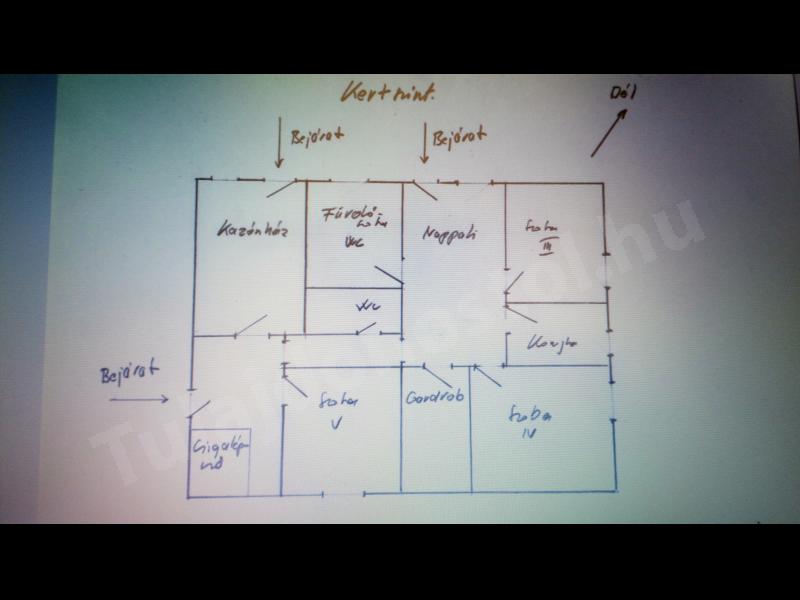 Kertszint.
Dél
Bejárat
Bejárat
Kazánház
Fürdő-
szoba
WC
Nappali
Szoba
III
WC
Konyha
Bejárat
Szoba
V
Gardrób
Szoba
IV
Csigalép-
cső